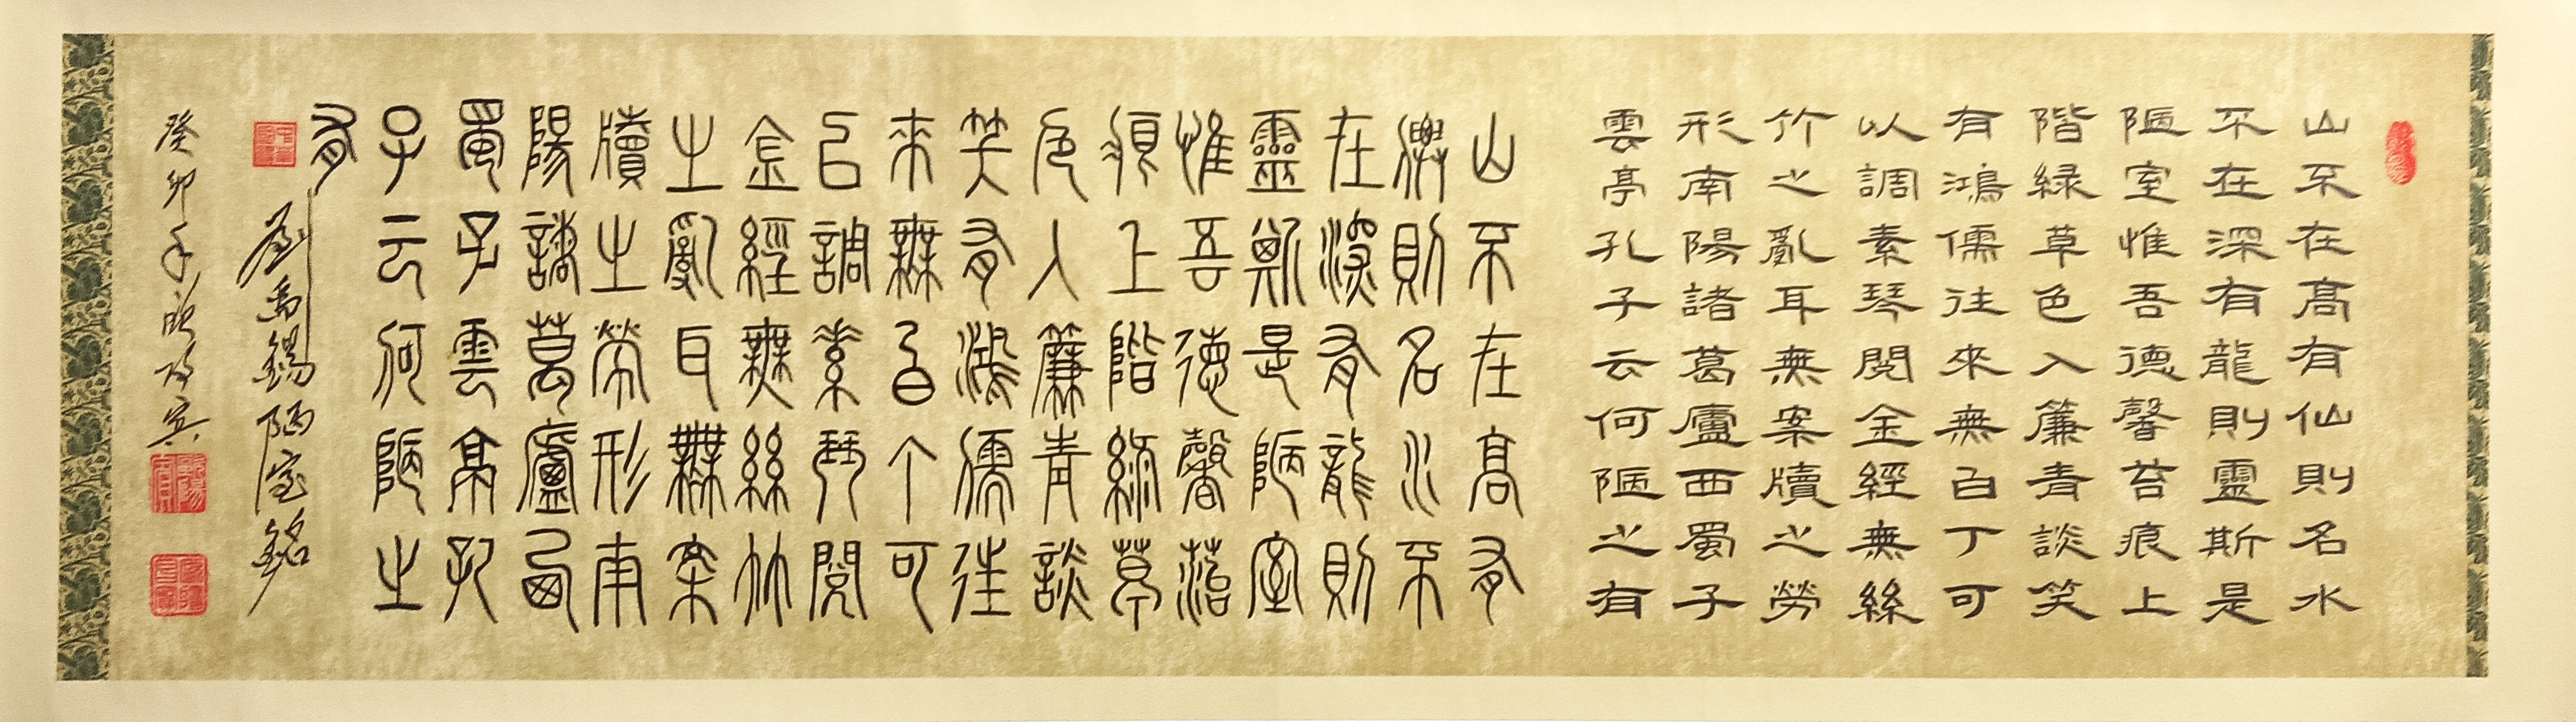 山不在高有仙則名水
不在深有龍則靈斯是
陋室惟吾德馨苔痕上
階緑草色入簾青談笑
有鴻儒往來無白丁可
以調素琴閱金經無絲
竹之亂耳無案牘之勞
形南陽諸葛廬西蜀子
雲亭孔子云何陋之有
山不在高有
僊則名水不
在深有龍則
靈斯是陋室
惟吾德馨苔
痕上階綠草
色入簾青談
笑有鴻儒往
來無白丁可
以調素琴閱
金經無絲竹
之亂耳無案
牘之勞形南
陽諸葛廬西
蜀子雲亭孔
子云何陋之
有
劉禹錫陋室銘
癸卯年